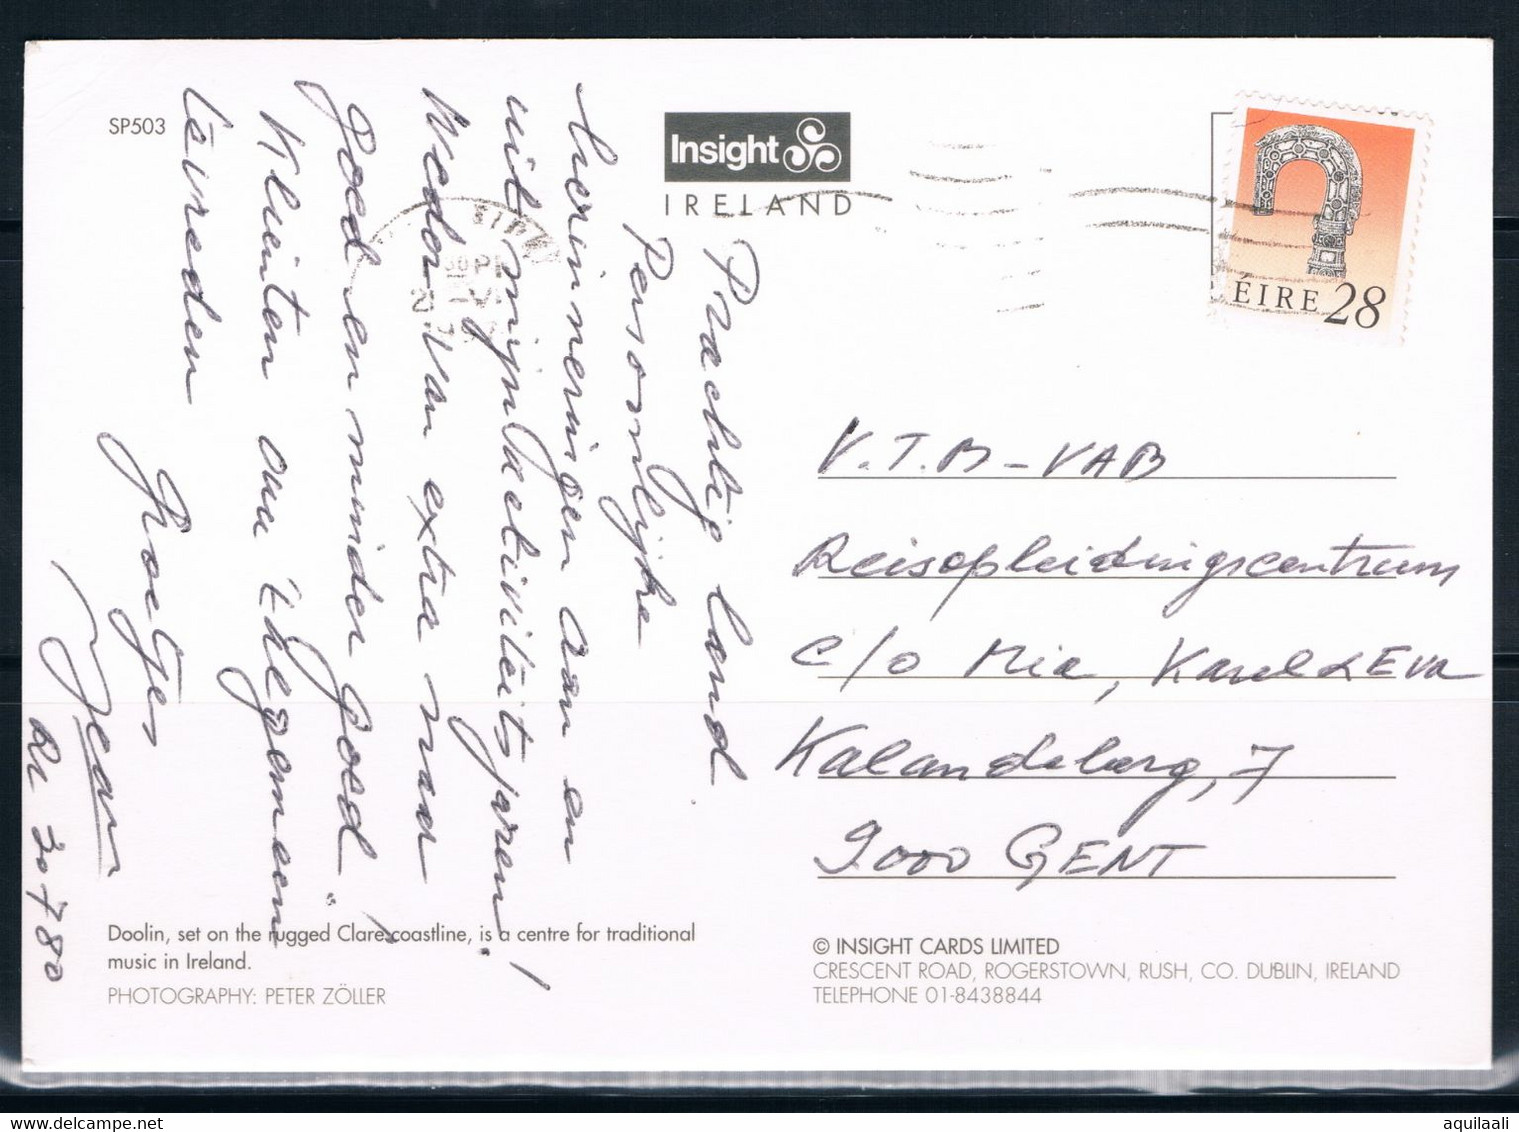 SP503
Insight
IRELAND
ÉIRE 28
Prachtig land
Persoonlijke
herinneringen aan en
uit mijn activiteitsjaren!
Weder van extra naar
goed en minder goed!
Klanten om 't
tevreden
Groetjes
Jean
V.T.B-VAB
Reisopleidingscentrum
c/o Mia, Karel & Eva
Kalandeberg, 7
9000 GENT
Doolin, set on the rugged Clare coastline, is a centre for traditional
music in Ireland.
PHOTOGRAPHY: PETER ZÖLLER
© INSIGHT CARDS LIMITED
CRESCENT ROAD, ROGERSTOWN, RUSH, CO. DUBLIN, IRELAND
TELEPHONE 01-8438844
aquilaali